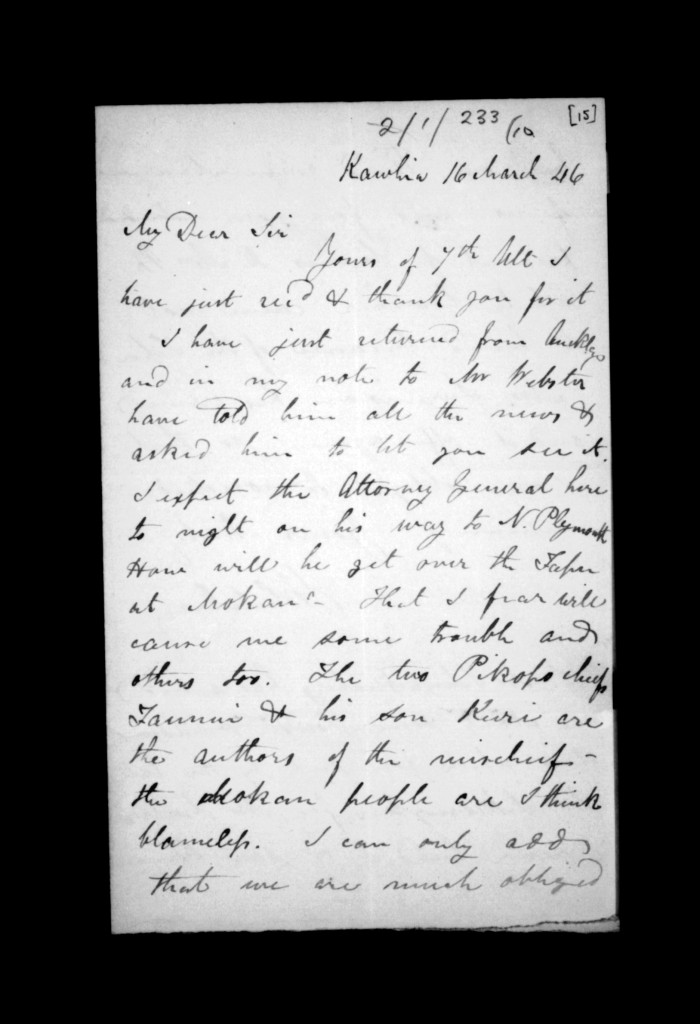 [15]
2/1/ 233 /10
Kawhia 16 March 46
My Dear Sir
Yours of 7th Ult I
have just recd & thank you for it
I have just returned from
and in my note to Mr Webster
have told him all the news &
asked him to let you see it.
I expect the Attorney General here
to night on his way to N. Plymouth
How will he get over the Tapu
at Mokau - That I fear will
cause me some trouble and
others too. The two Pikopo chiefs
& his son are
the authors of the mischief -
the Mokau people are I think
blameless. I can only add
that we are much obliged